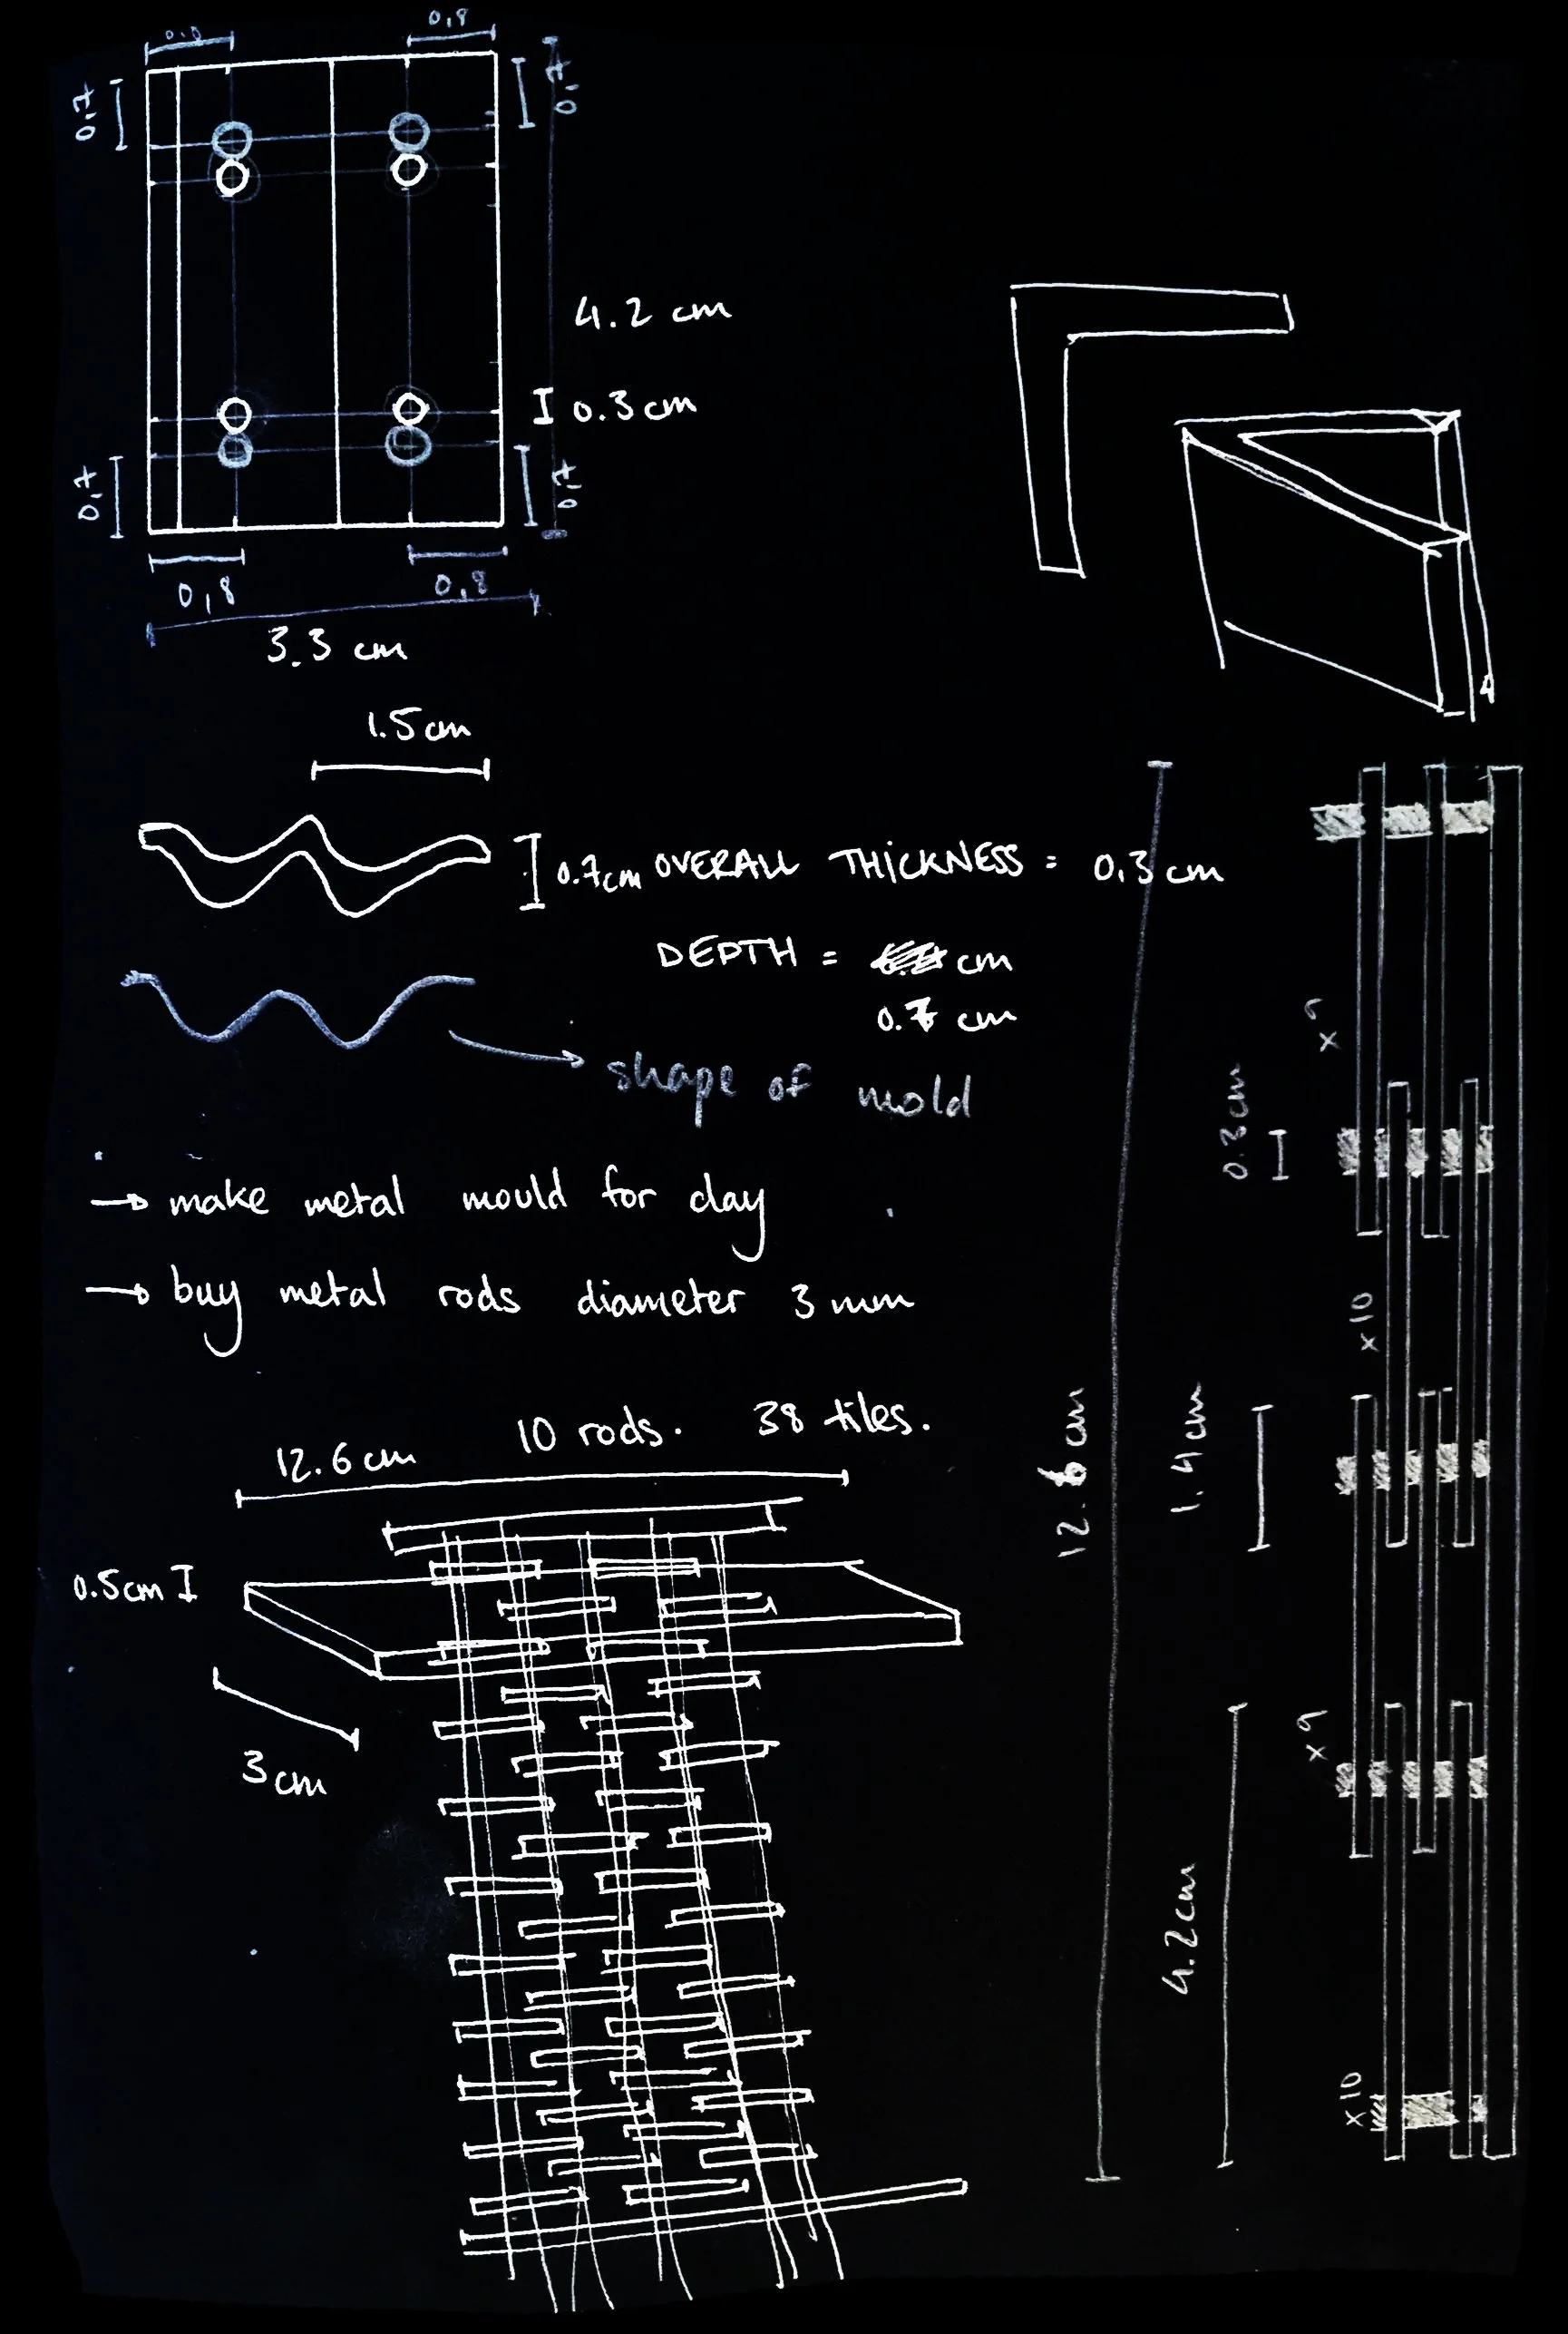 0.8
0,8
0.7
0.7
4.2 cm
0.3 cm
0.7
0.7
0,8
0,8
3.3 cm
1.5 cm
0.7cm OVERALL THICKNESS = 0.3 cm
DEPTH = cm
0.7 cm
shape of mold
→ make metal mould for clay
→ buy metal rods diameter 3 mm
10 rods. 38 tiles.
12.6 cm
0.5cm
3 cm
x 9
0.3 cm
x 10
12.6 cm
1.4 cm
x 9
4.2 cm
x 10